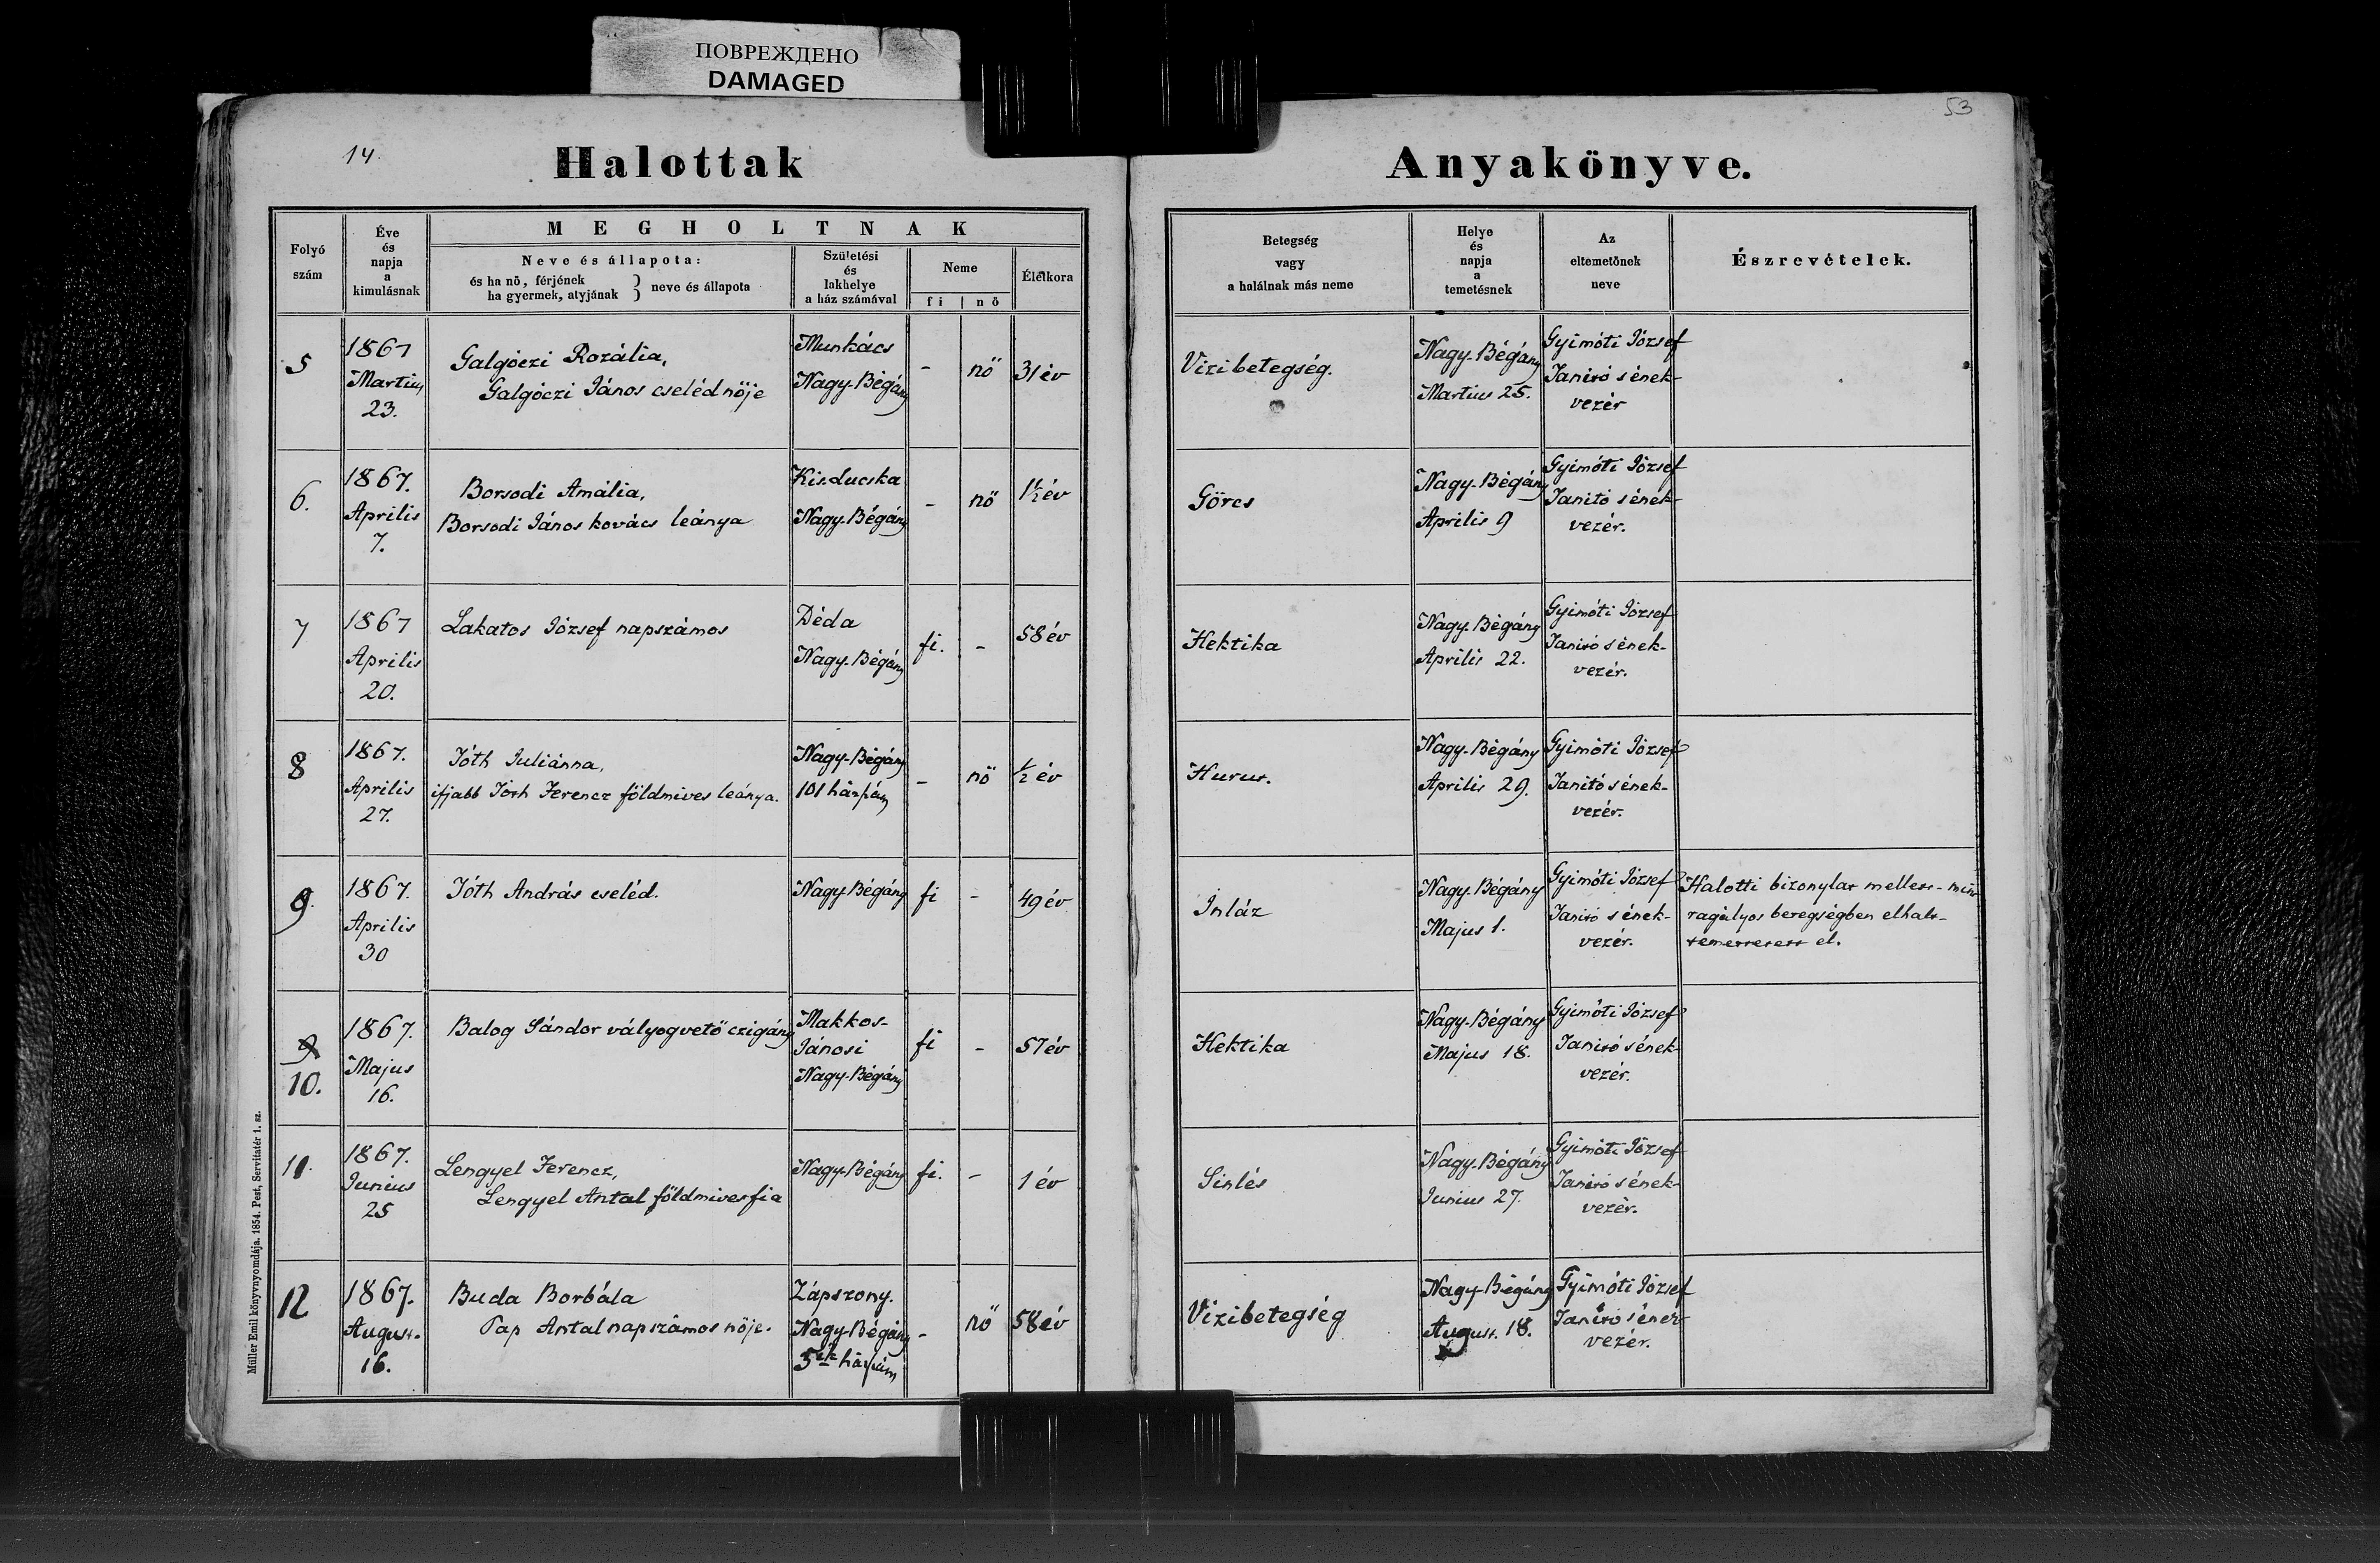 ПОВРЕЖДЕНО
DAMAGED
53
14.
Halottak
Anyakönyve.
Folyó szám
Éve és napja a kimulásnak
MEGHOLTNAK
Neve és állapota:
és ha nö, férjének
ha gyermek, atyjának } neve és állapota
Születési és lakhelye a ház számával
Neme
fi | nö
Élétkora
Betegség vagy a halálnak más neme
Helye és napja a temetésnek
Az eltemetönek neve
Észrevételek.
5
1867
Martius
23.
Galgóczi Rozália,
Galgóczi János cseléd nöje
Munkács
Nagy-Bégány
-
nö
31 év
Vizibetegség.
Nagy-Bégány
Martius 25.
Gyimóti József
Tanitó s ének-
vezér
6.
1867.
Aprilis
7.
Borsodi Amália,
Borsodi János kovács leánya
Kisducska
Nagy-Bégány
-
nö
1½ év
Görcs
Nagy-Bégány
Aprilis 9
Gyimóti József
Tanitó s ének-
vezér.
7
1867
Aprilis
20.
Lakatos József napszámos
Déda
Nagy-Bégány
fi.
-
58 év
Hektika
Nagy-Bégány
Aprilis 22.
Gyimóti József
Tanitó s ének-
vezér.
8
1867.
Aprilis
27.
Tóth Juliánna,
ifjabb Tóth Ferencz földmives leánya.
Nagy-Bégány
101 házszám
-
nö
½ év
Hurut.
Nagy-Bégány
Aprilis 29.
Gyimóti József
Tanitó s ének-
vezér.
9.
1867.
Aprilis
30
Tóth András cseléd.
Nagy-Bégány
fi
-
49 év
Inláz
Nagy-Bégány
Majus 1.
Gyimóti József
Tanitó s ének-
vezér.
Halotti bizonylat mellett - mint
ragályos betegségben elhalt-
temettetett el.
9
10.
1867.
Majus
16.
Balog Sándor vályogvető czigány
Makkos-
Jánosi
Nagy-Bégány
fi
-
57 év
Hektika
Nagy-Bégány
Majus 18.
Gyimóti József
Tanitó s ének-
vezér.
11.
1867.
Junius
25
Lengyel Ferencz,
Lengyel Antal földmives fia
Nagy-Bégány
fi.
-
1 év
Sinlés
Nagy-Bégány
Junius 27.
Gyimóti József
Tanitó s ének-
vezér.
12
1867.
August.
16.
Buda Borbála
Pap Antal napszámos nöje.
Zápszony.
Nagy-Bégány
5ik házszám
-
nö
58 év
Vizibetegség
Nagy-Bégány
August. 18.
Gyimóti József
Tanitó s ének-
vezér.
Müller Emil könyvnyomdája. 1854. Pest, Servitatér 1. sz.